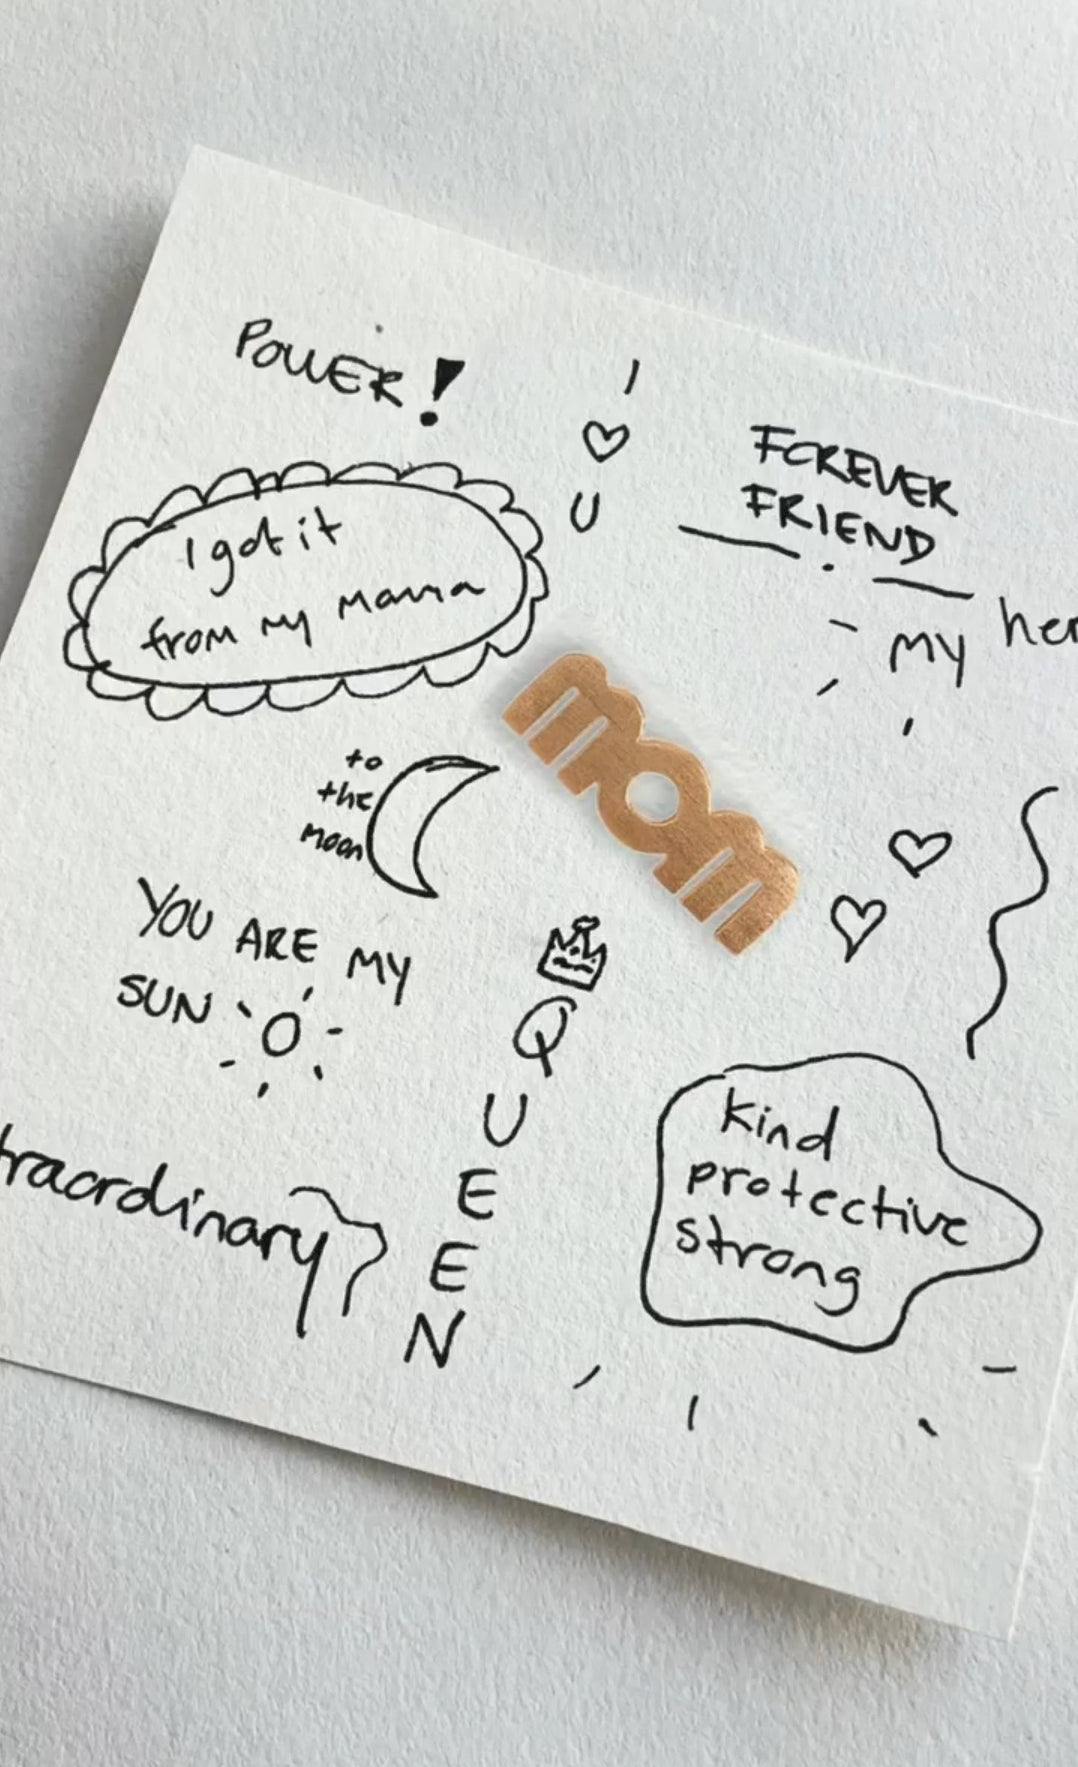 POWER!
I
U
FOREVER
FRIEND
I got it
from my mama
my
mom
to
the
moon
YOU ARE MY
SUN
QUEEN
traordinary
kind
protective
strong